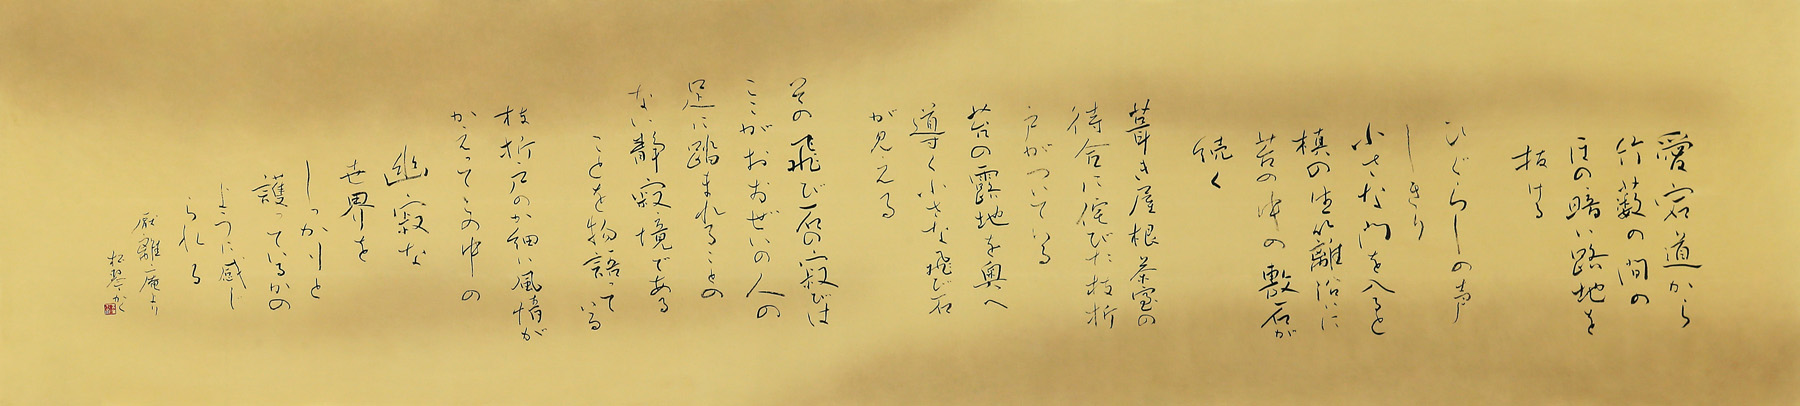 愛宕道から
竹薮の間の
ほの暗い路地を
抜ける
ひぐらしの声
しきり
小さな門を入ると
槙の生籬沿いに
苔の中の敷石が
続く
葺き屋根茶室の
待合に侘びた枝折
戸がついている
苔の露地を奥へ
導く小さな飛び石
が見える
その飛び石の寂びは
ここがおおぜいの人の
足に踏まれることの
ない静寂境である
ことを物語って
いる
枝折戸のか細い風情が
かえってこの中の
幽寂な
世界を
しっかりと
護っているかの
ように感じ
られる
厭離庵より
松琴かく